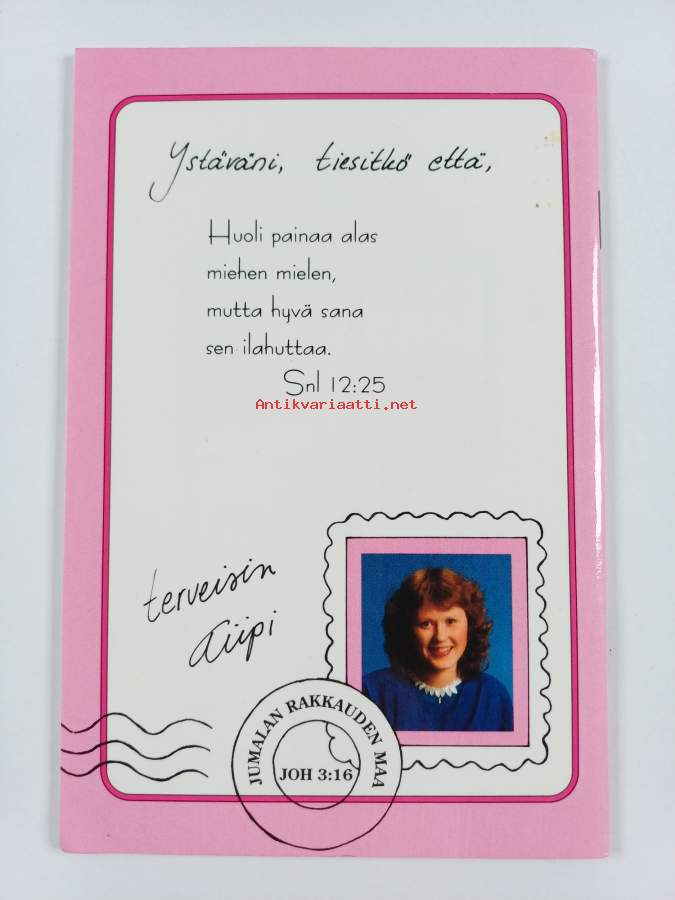 Ystäväni, tiesitkö että,
Huoli painaa alas
miehen mielen,
mutta hyvä sana
sen ilahuttaa.
Snl 12:25
Antikvariaatti.net
terveisin
Aiipi
JUMALAN RAKKAUDEN MAA
JOH 3:16